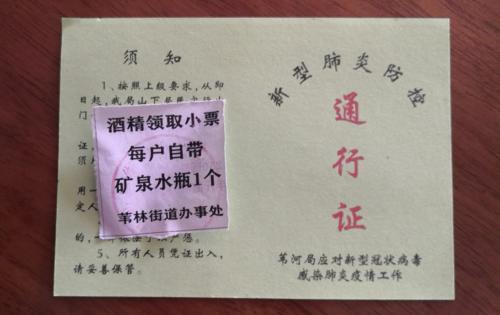 须知
1、按照上级要求，从即
日起，我局山下
门
证，
须
用一
定人
的，
5、所有人员凭证出入，
请妥善保管。
酒精领取小票
每户自带
矿泉水瓶1个
苇林街道办事处
新型肺炎防控
通行证
苇河局应对新型冠状病毒
感染肺炎疫情工作